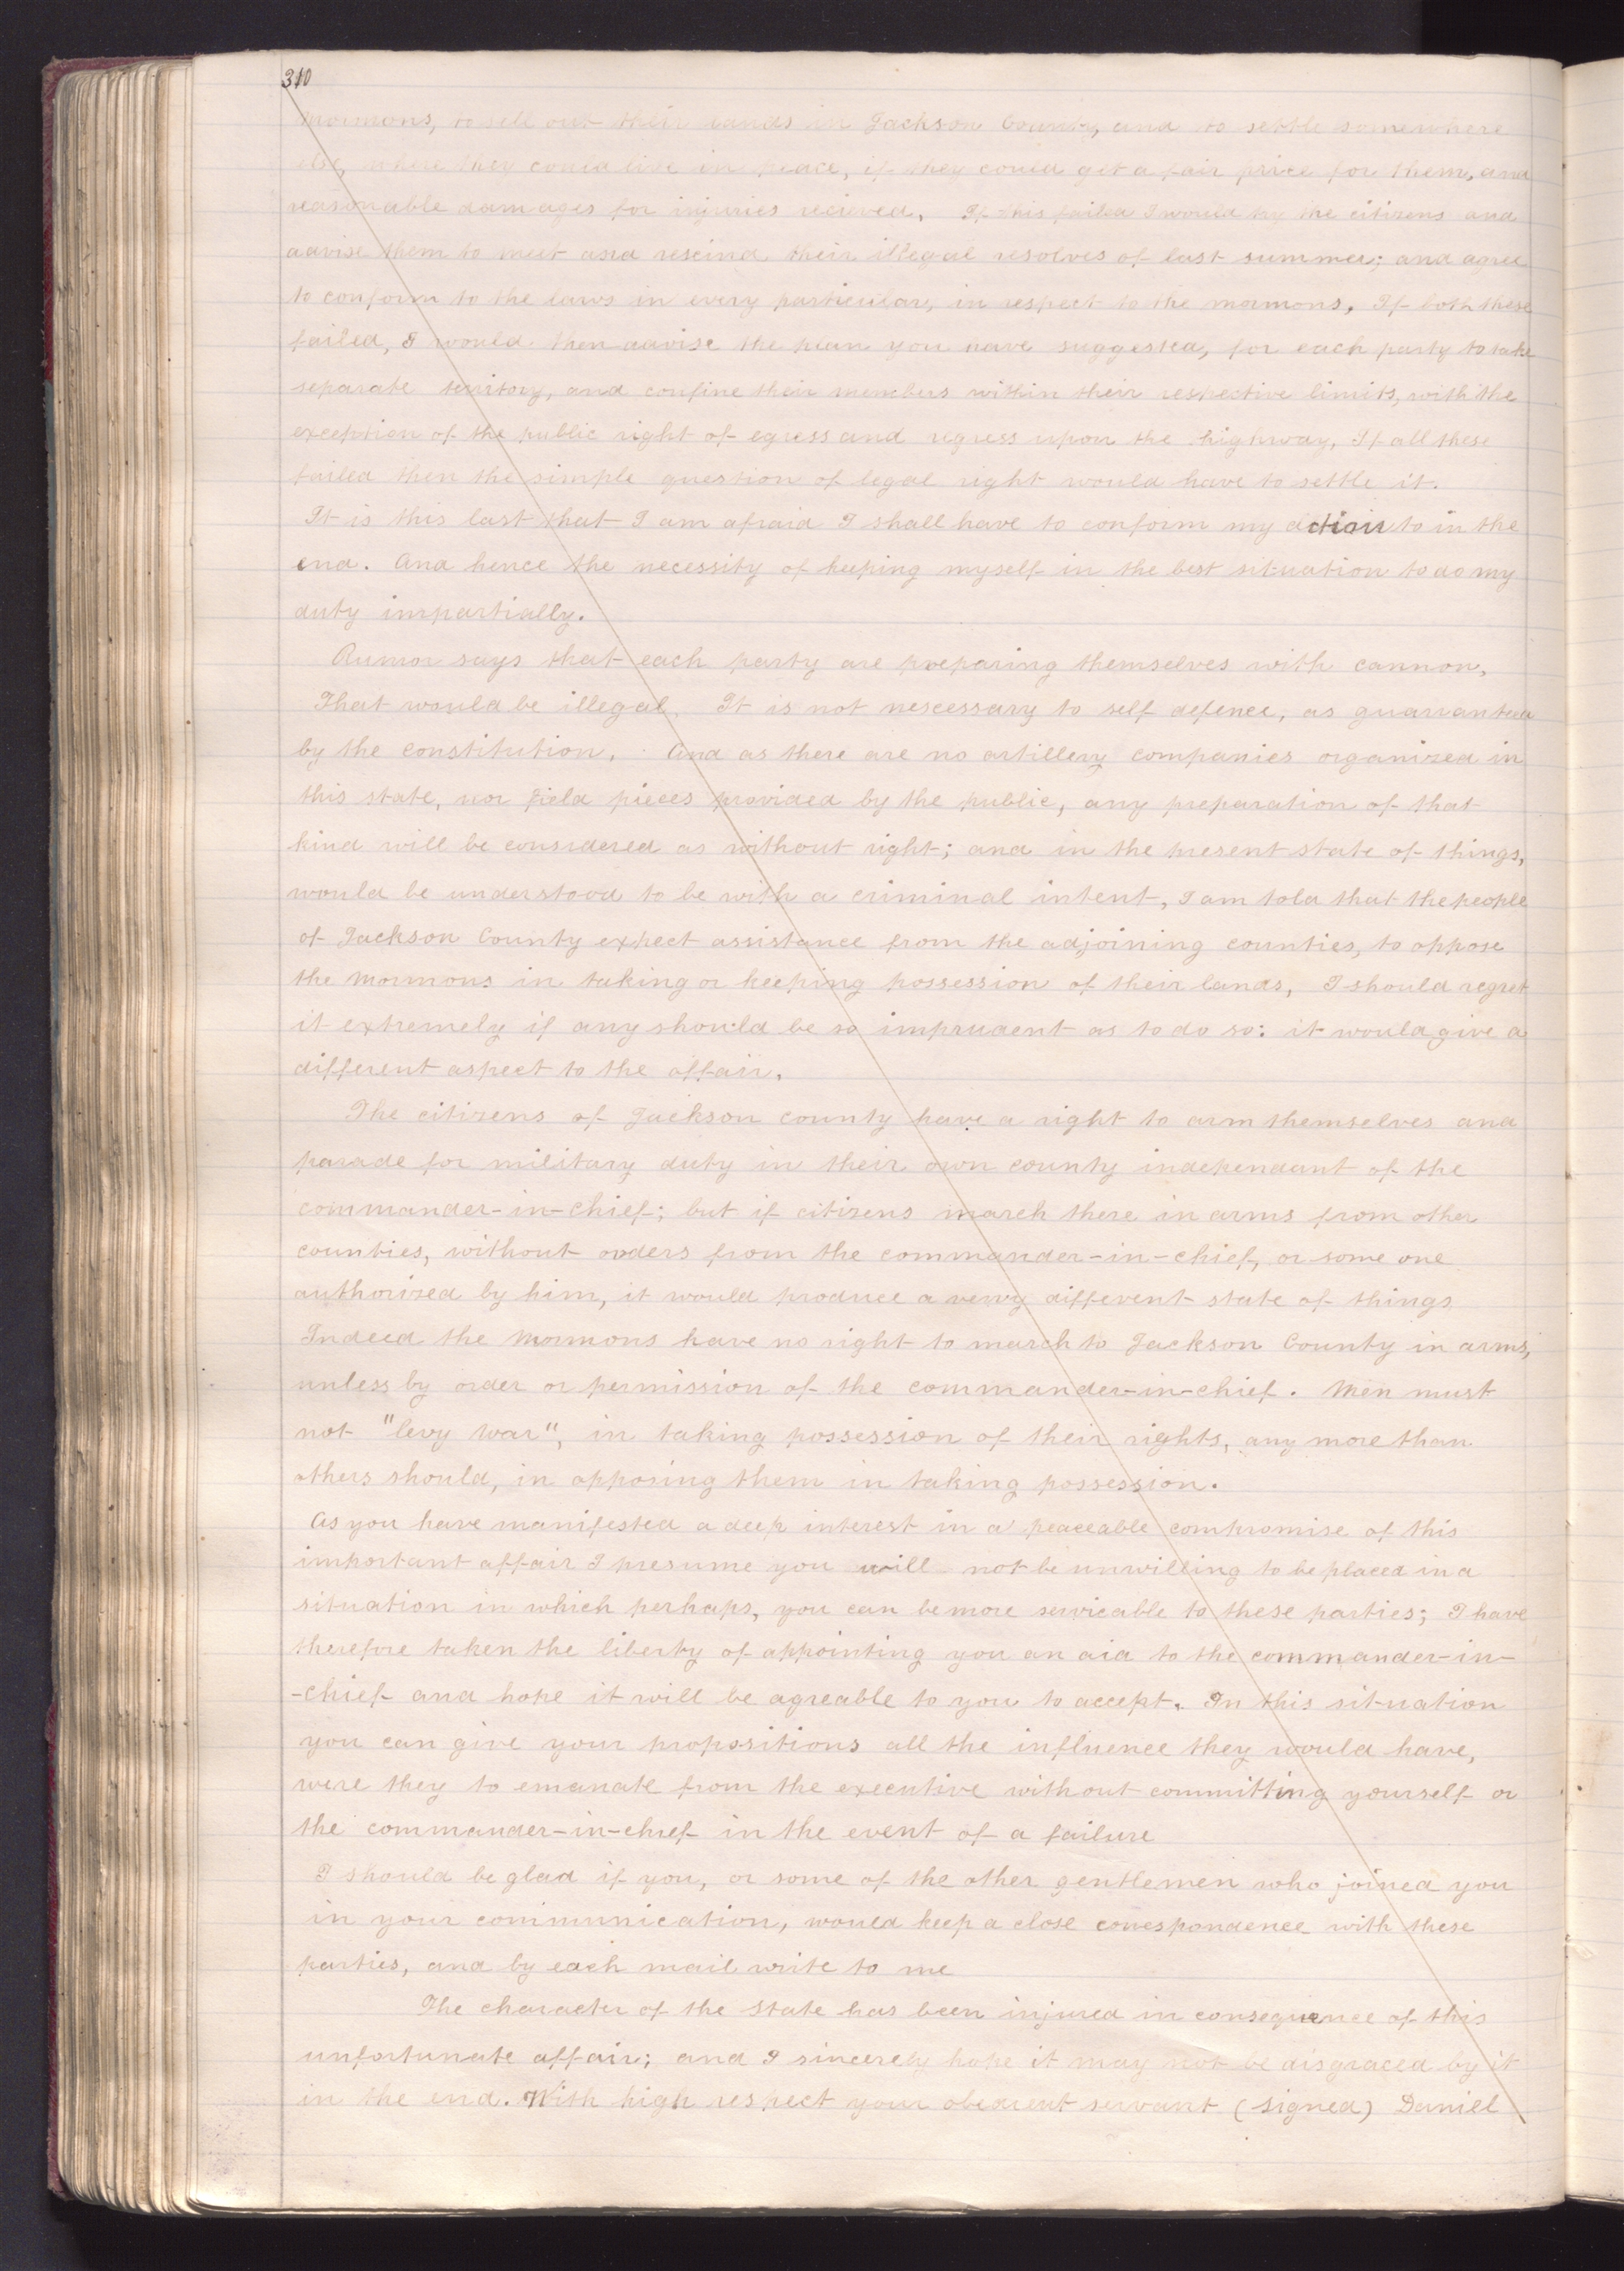 310
mormons, to sell out their lands in Jackson County, and to settle somewhere
else, where they could live in peace, if they could get a fair price for them, and
reasonable damages for injuries recieved. If this failed I would try the citizens and
advise them to meet and rescind their illegal resolves of last summer; and agree
to conform to the laws in every particular, in respect to the mormons. If both these
failed, I would then advise the plan you have suggested, for each party to take
separate territory, and confine their members within their respective limits, with the
exception of the public right of egress and regress upon the highway. If all these
failed then the simple question of legal right would have to settle it.
It is this last that I am afraid I shall have to conform my action to in the
end. And hence the necessity of keeping myself in the best situation to do my
duty impartially.
Rumor says that each party are preparing themselves with cannon.
That would be illegal. It is not nescessary to self defence, as guarranteed
by the constitution. And as there are no artillery companies organized in
this state, nor field pieces provided by the public, any preparation of that
kind will be considered as without right; and in the present state of things,
would be understood to be with a criminal intent, I am told that the people
of Jackson County expect assistance from the adjoining counties, to oppose
the Mormons in taking or keeping possession of their lands, I should regret
it extremely if any should be so imprudent as to do so: it would give a
different aspect to the affair.
The citizens of Jackson county have a right to arm themselves and
parade for military duty in their own county independant of the
commander-in-chief; but if citizens march there in arms from other
counties, without orders from the commander-in-chief, or some one
authorized by him, it would produce a verry different state of things
Indeed the Mormons have no right to march to Jackson County in arms,
unless by order or permission of the commander-in-chief. Men must
not "levy war", in taking possession of their rights, any more than
others should, in opposing them in taking possession.
As you have manifested a deep interest in a peaceable compromise of this
important affair I presume you will not be unwilling to be placed in a
situation in which perhaps, you can be more servicable to these parties; I have
therefore taken the liberty of appointing you an aid to the commander-in-
-chief and hope it will be agreable to you to accept. In this situation
you can give your propositions all the influence they would have,
were they to emanate from the executive without committing yourself or
the commander-in-chief in the event of a failure
I should be glad if you, or some of the other gentlemen who joined you
in your communication, would keep a close correspondence with these
parties, and by each mail write to me
The character of the state has been injured in consequence of this
unfortunate affair; and I sincerely hope it may not be disgraced by it
in the end. With high respect your obedient servant (signed) Daniel